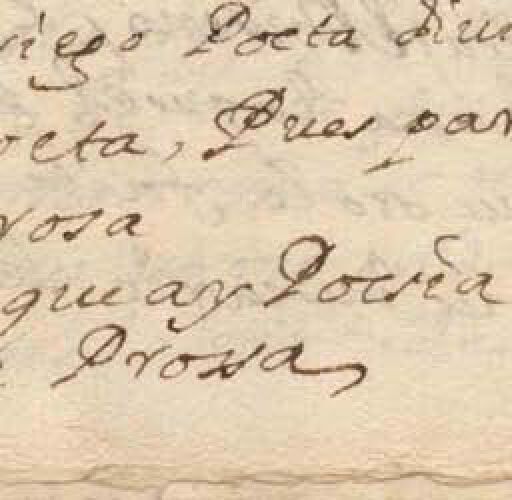 riego Poeta diui
oeta, Pues par
rosa
que ay Poesia
Prossa,